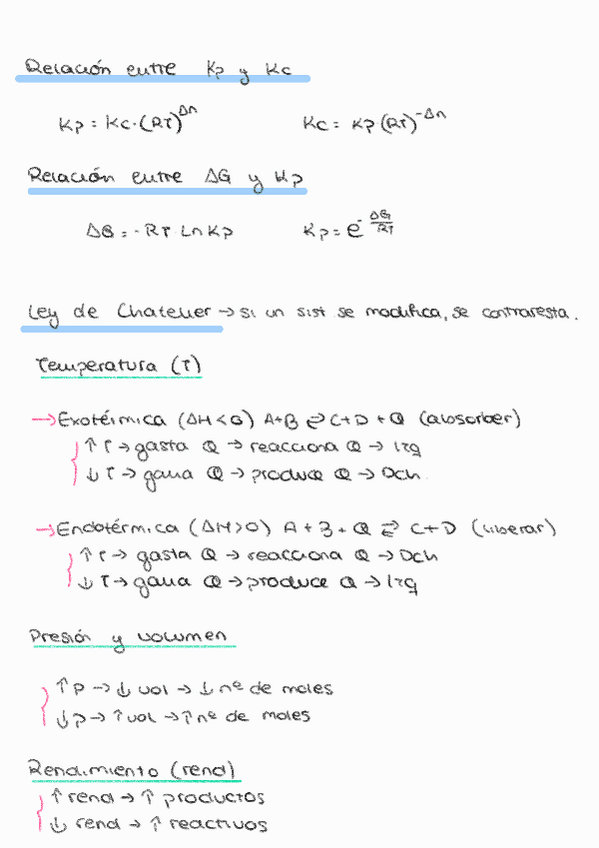 Relación entre Kp y Kc
Kp = Kc·(RT)^Δn Kc = Kp(RT)^-Δn
Relación entre ΔG y Kp
ΔG = -RT LnKp Kp = e^-ΔG/RT
Ley de Chatelier → si un sist se modifica, se contraresta.
Temperatura (T)
→ Exotérmica (ΔH<0) A+B ⇄ C+D+Q (absorber)
↑T → gasta Q → reacciona Q → Izq
↓T → gana Q → produce Q → Dch
→ Endotérmica (ΔH>0) A + B + Q ⇄ C+D (liberar)
↑T → gasta Q → reacciona Q → Dch
↓T → gana Q → produce Q → Izq
Presión y volumen
↑P → ↓vol → ↓nº de moles
↓p → ↑vol → ↑nº de moles
Rendimiento (rend)
↑rend → ↑ productos
↓ rend → ↑ reactivos